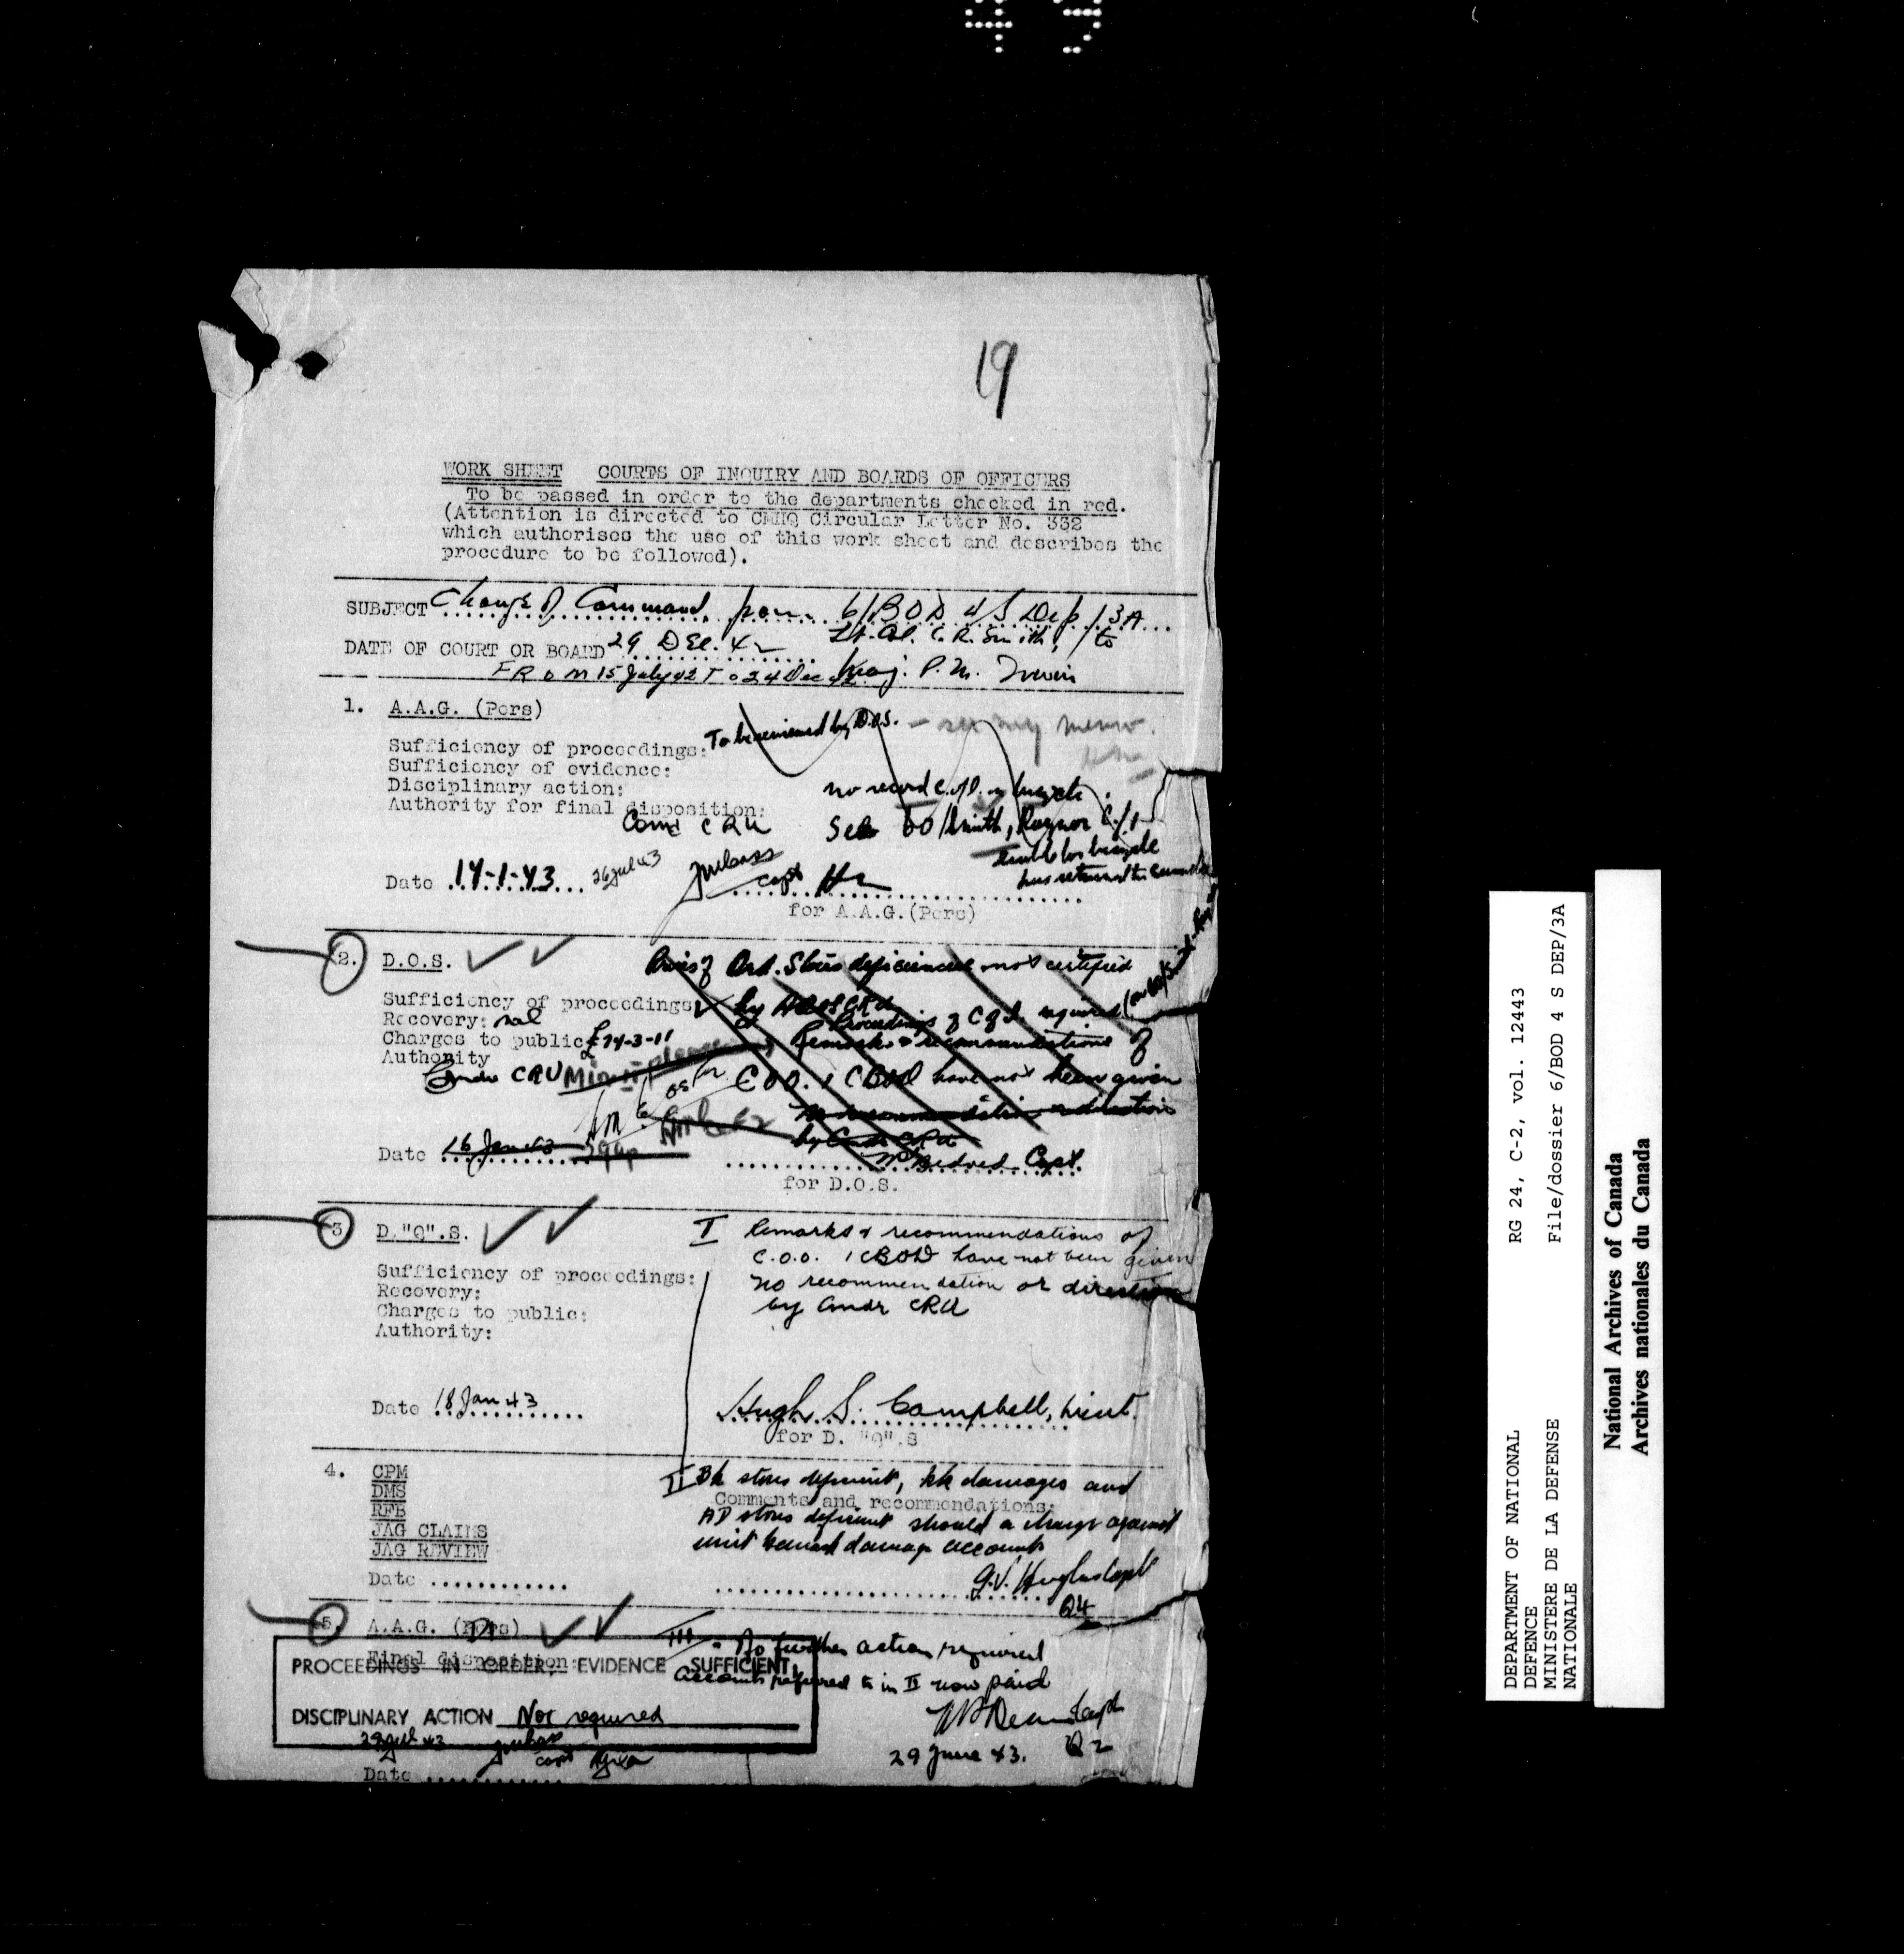 49
19
WORK SHEET COURTS OF INQUIRY AND BOARDS OF OFFICERS
To be passed in order to the departments checked in red.
(Attention is directed to CMHQ Circular Letter No. 332
which authorises the use of this work sheet and describes the
procedure to be followed).
SUBJECT Change of Command, from 6/BOD 4/S Dep/3A
Lt. Col. C. R. Smith, to
DATE OF COURT OR BOARD 29 DEC. 42
FROM 15 July 42 To 24 Dec 42 Maj. P. M. Irwin
1. A.A.G. (Pers)
To be reviewed by D.O.S. - see my memo.
Sufficiency of proceedings:
Sufficiency of evidence:
Disciplinary action:
no record C. of I. on bicycle.
Authority for final disposition:
Comd CRU
See 60/Smith, Raynor
bicycle
has returned to
Date 14-1-43 26 Jul 43
Capt
for A.A.G.(Pers)
2. D.O.S.
Ord. Stores deficiencies not certified
Sufficiency of proceedings
by
Recovery: nil
Proceedings of C of I. required
Charges to public £74-3-11
Remarks & recommendations of
Authority
Comdr CRU
please
C.O.O. 1 CBOD have not been given
No recommendation or direction
by Comdr CRU
Date 16 Jan 43
Capt.
for D.O.S.
3 D."Q".S.
I Remarks & recommendations of
C.O.O. 1 CBOD have not been given
Sufficiency of proceedings:
no recommendation or direction
Recovery:
by Comdr CRU
Charges to public:
Authority:
Date 18 Jan 43
Hugh S. Campbell, Lieut.
for D. "Q".S
4. CPM
DMS
RFB
JAG CLAIMS
JAG REVIEW
II Bk stores deficient, bk damages and
Comments and recommendations:
AD stores deficient should a charge against
unit barrack damage accounts
Date
G.V. Hughes Capt
Q4
5. A.A.G. (Pers)
Final disposition:
III - No further action required
accounts referred to in II now paid
PROCEEDINGS IN ORDER, EVIDENCE SUFFICIENT,
DISCIPLINARY ACTION Not required
Capt
Q2
29 June 43.
29 Jul 43
Capt
Date
DEPARTMENT OF NATIONAL
DEFENCE
MINISTERE DE LA DEFENSE
NATIONALE
RG 24, C-2, vol. 12443
File/dossier 6/BOD 4 S DEP/3A
National Archives of Canada
Archives nationales du Canada